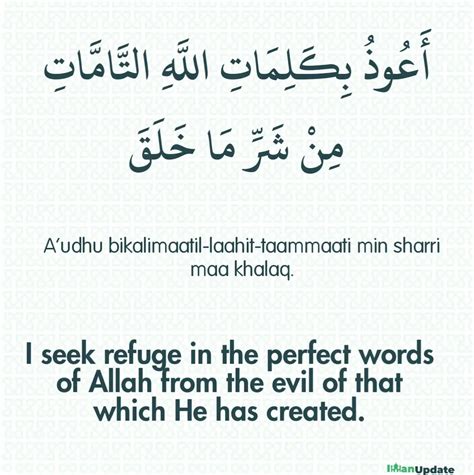 أَعُوذُ بِكَلِمَاتِ اللَّهِ التَّامَّاتِ
مِنْ شَرِّ مَا خَلَقَ
A’udhu bikalimaatil-laahit-taammaati min sharri
maa khalaq.
I seek refuge in the perfect words
of Allah from the evil of that
which He has created.
ImanUpdate